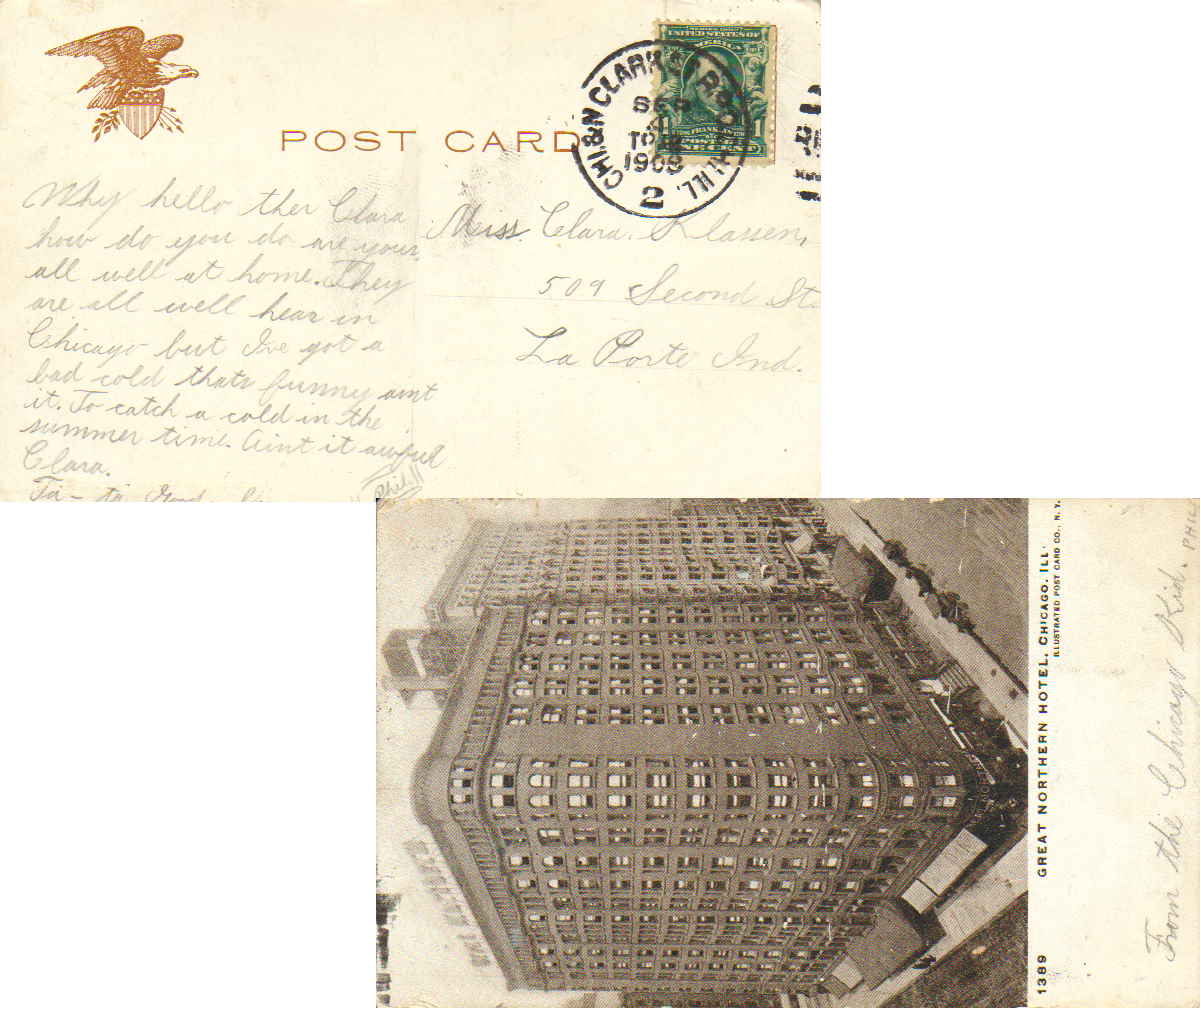 POST CARD
UNITED STATES OF
CHI. & N CLARK
SEP
1908
2
ILL.
Why hello ther Clara
how do you do are your
all well at home. They
are all well hear in
Chicago but I've got a
bad cold thats funny aint
it. To catch a cold in the
summer time. Aint it awful
Clara.
Ta-ta
Phil
Miss. Clara. Klassen,
509 Second St.
La Porte Ind.
1389 GREAT NORTHERN HOTEL, CHICAGO, ILL.
ILLUSTRATED POST CARD CO., N. Y.
From the Chicago Kid. PHIL